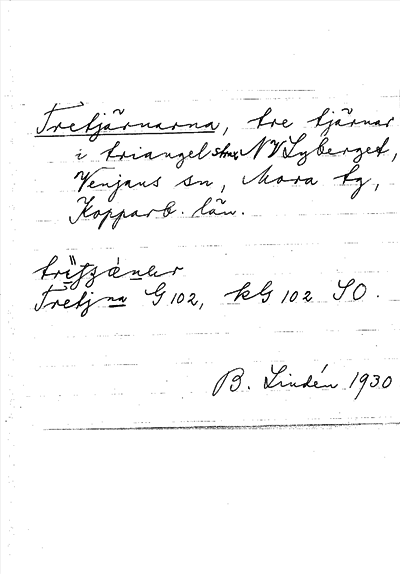 Tretjärnarna, tre tjärnar
i triangel strax NV Lyberget,
Venjans sn, Mora tg,
Kopparb. län.
Tretjna G 102, kG 102 SO.
B. Lindén 1930